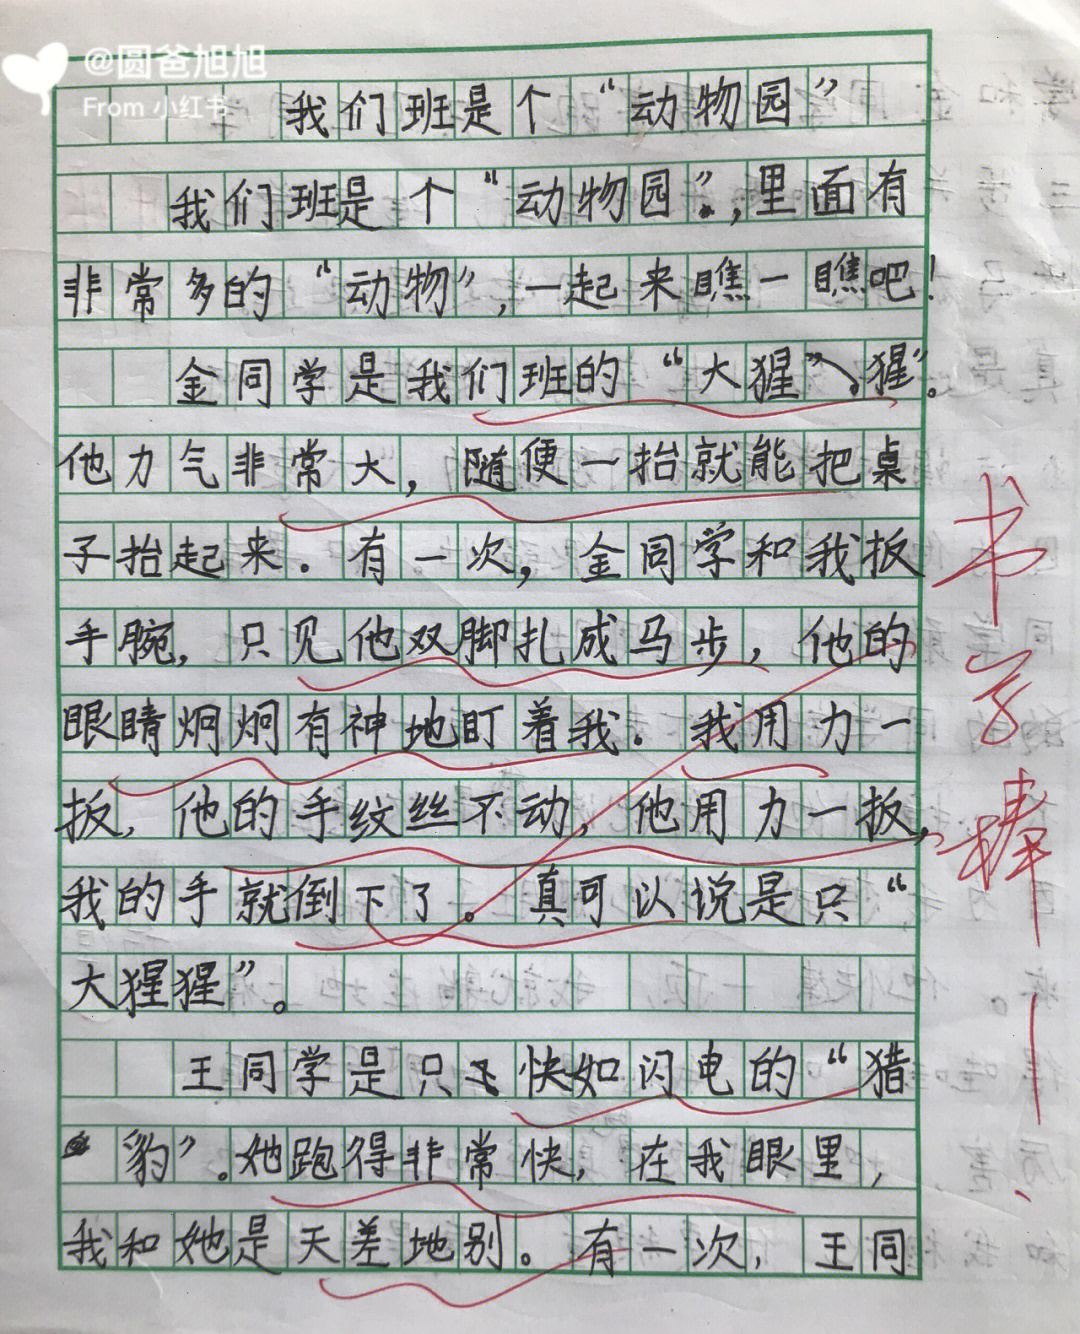 @圆爸旭旭
From 小红书
我们班是个“动物园”
我们班是个“动物园”,里面有
非常多的“动物”,一起来瞧一瞧吧!
金同学是我们班的“大猩猩”。
他力气非常大,随便一抬就能把桌
子抬起来.有一次,金同学和我扳
手腕,只见他双脚扎成马步,他的
眼睛炯炯有神地盯着我.我用力一
扳,他的手纹丝不动,他用力一扳,
我的手就倒下了。真可以说是只“
大猩猩”。
王同学是只飞快如闪电的“猎
豹”。她跑得非常快,在我眼里,
我和她是天差地别。有一次,王同
书写棒!